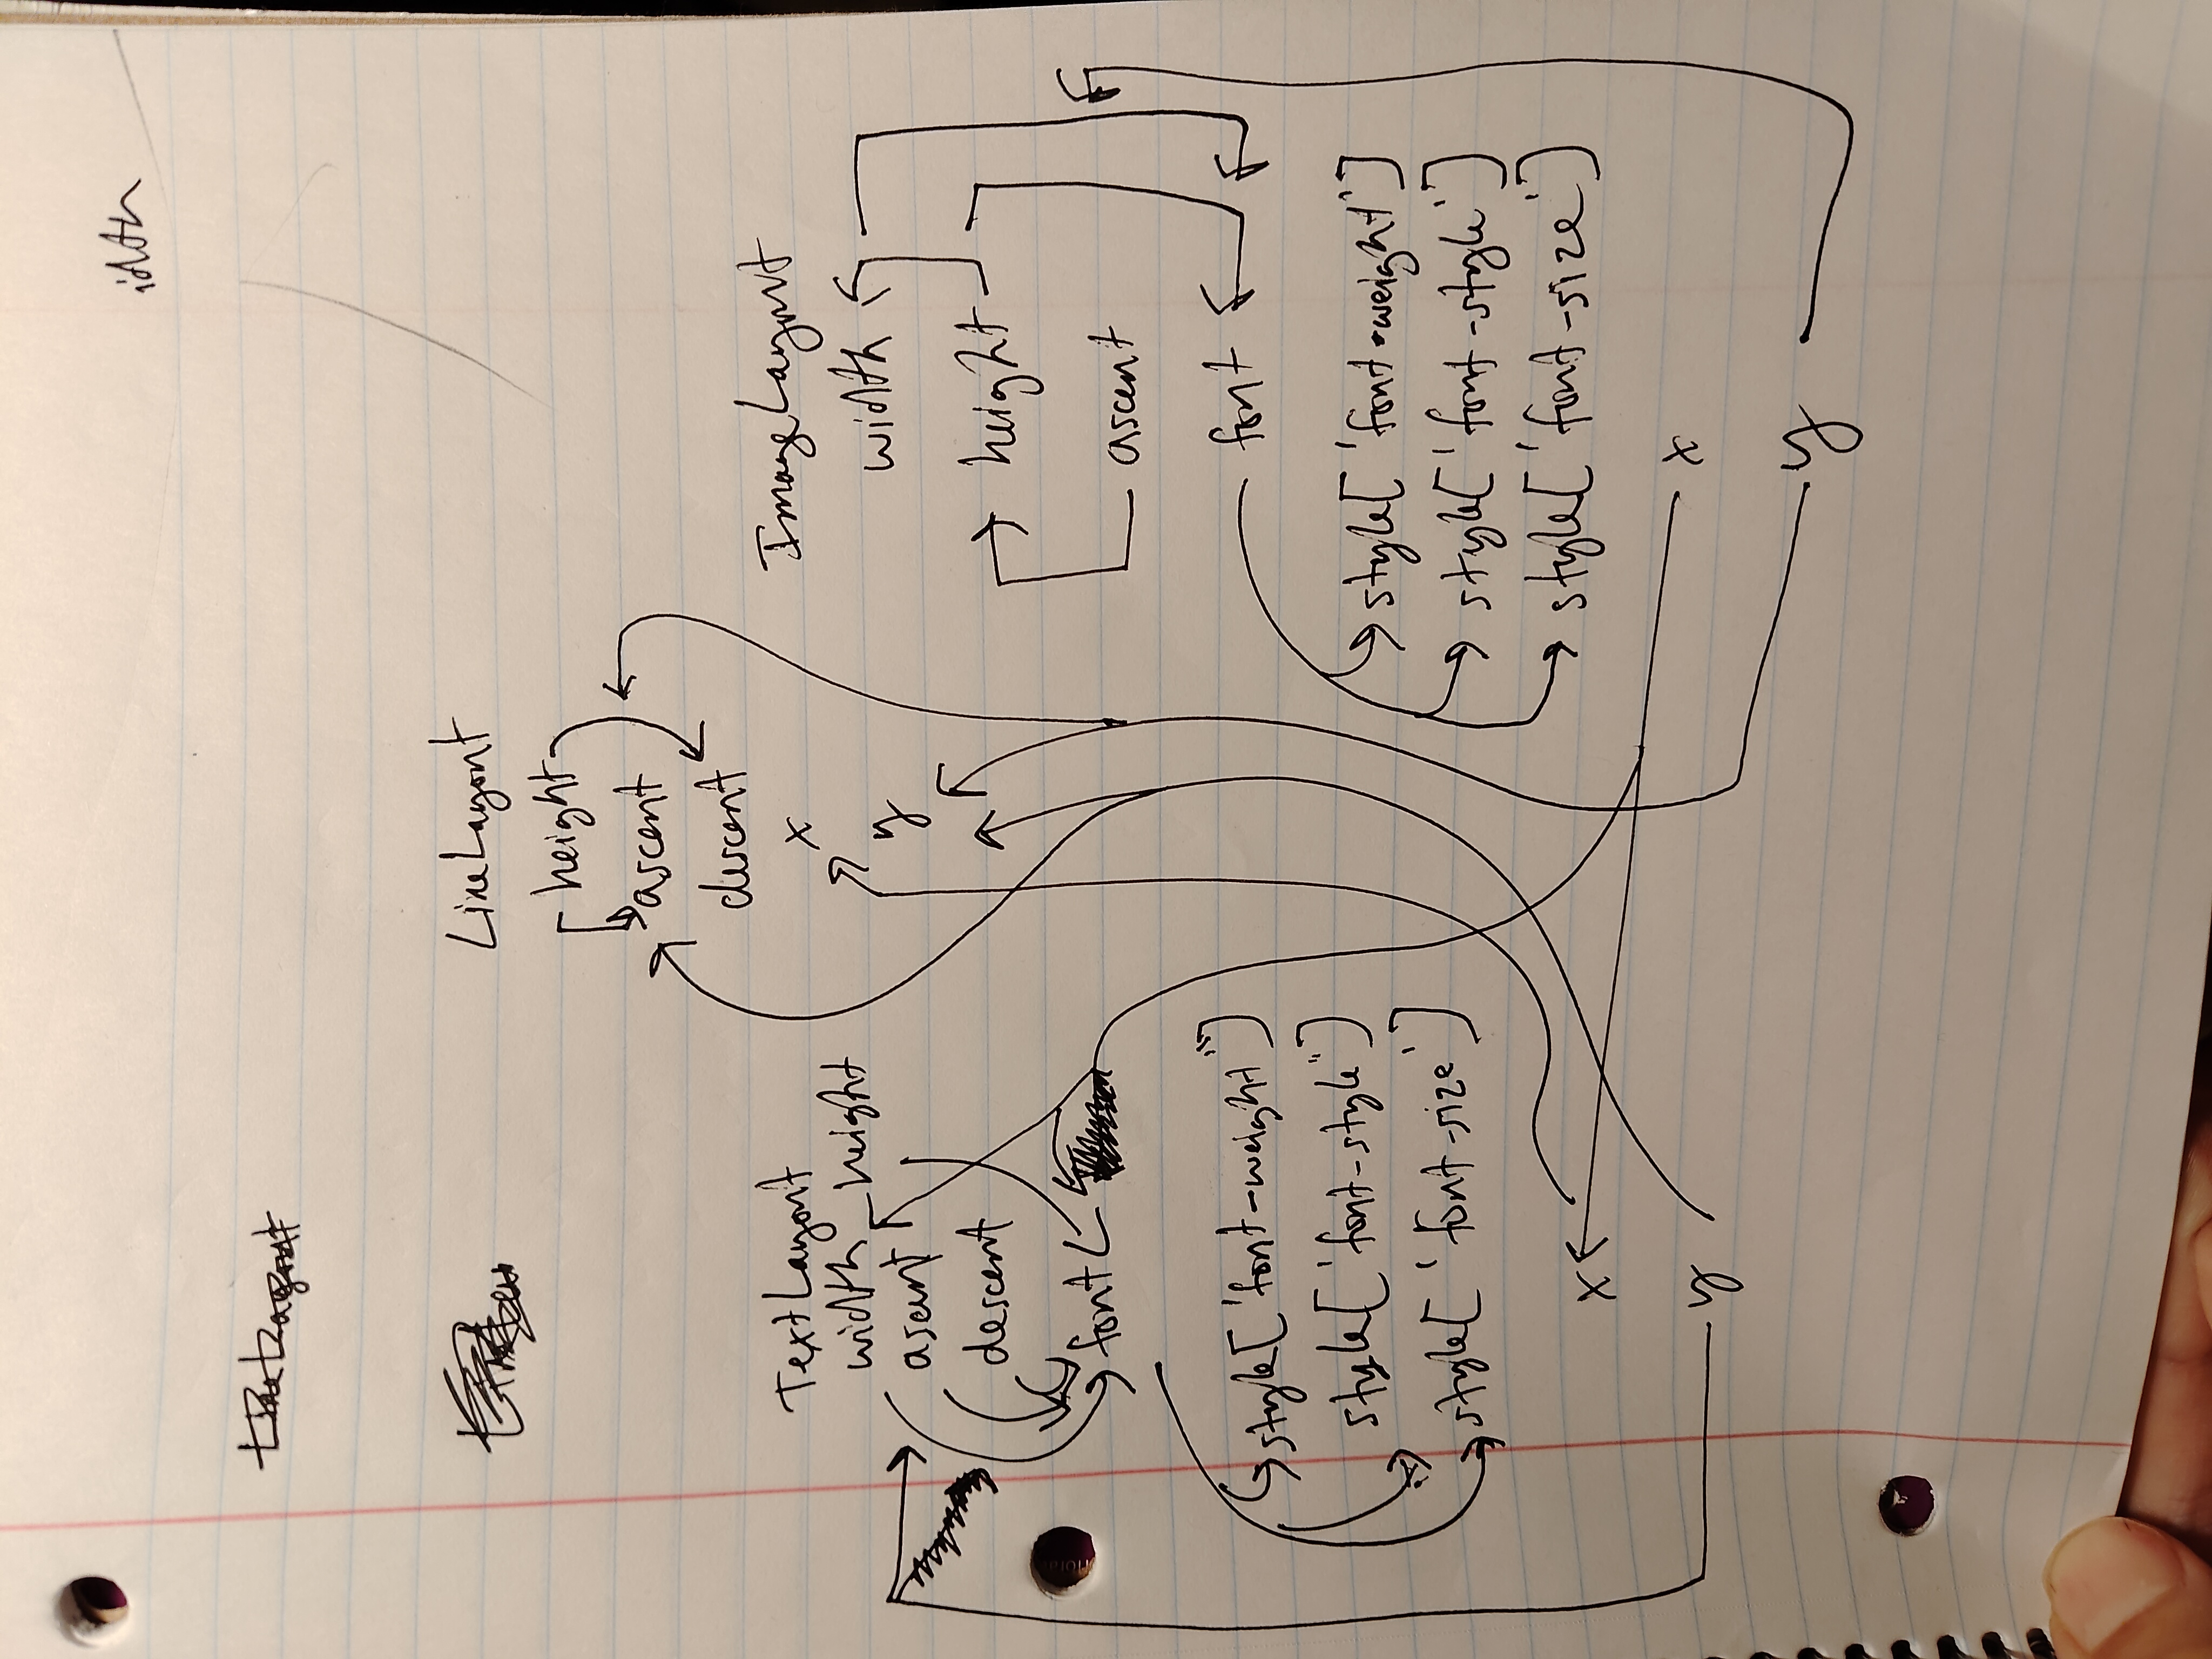 idth
LineLayout
LineLayout
height
ascent
descent
x
y
TextLayout
width height
ascent
descent
font
style['font-weight"]
style['font-style"]
style['font-size']
x
y
ImageLayout
width
height
ascent
font
style['font-weight']
style['font-style']
style['font-size']
x
y